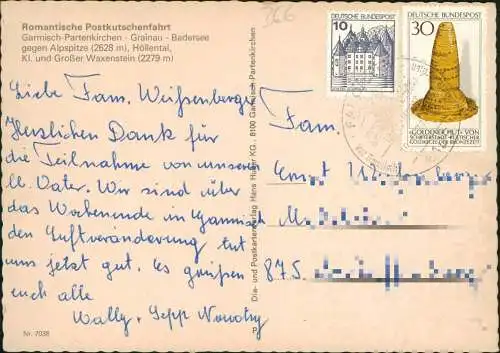 Romantische Postkutschenfahrt
Garmisch-Partenkirchen · Grainau · Badersee
gegen Alpspitze (2628 m), Höllental,
Kl. und Großer Waxenstein (2279 m)
366
Liebe Fam. Weißenberger
Herzlichen Dank für
die Teilnahme von unseren
lb. Vater. Wir sind über
das Wochenende in Garmisch
den Luftveränderung tut
uns jetzt gut. Es grüßen
euch alle
Wally, Sepp Nowotny
Nr. 7038
Dia- und Postkartenverlag Hans Huber KG, 8100 Garmisch-Partenkirchen
DEUTSCHE BUNDESPOST
10
DEUTSCHE BUNDESPOST
30
»GOLDENER HUT« VON
SCHIFFERSTADT · KULTISCHER
GOLDKEGEL DER BRONZEZEIT
Fam.
Ernst
875